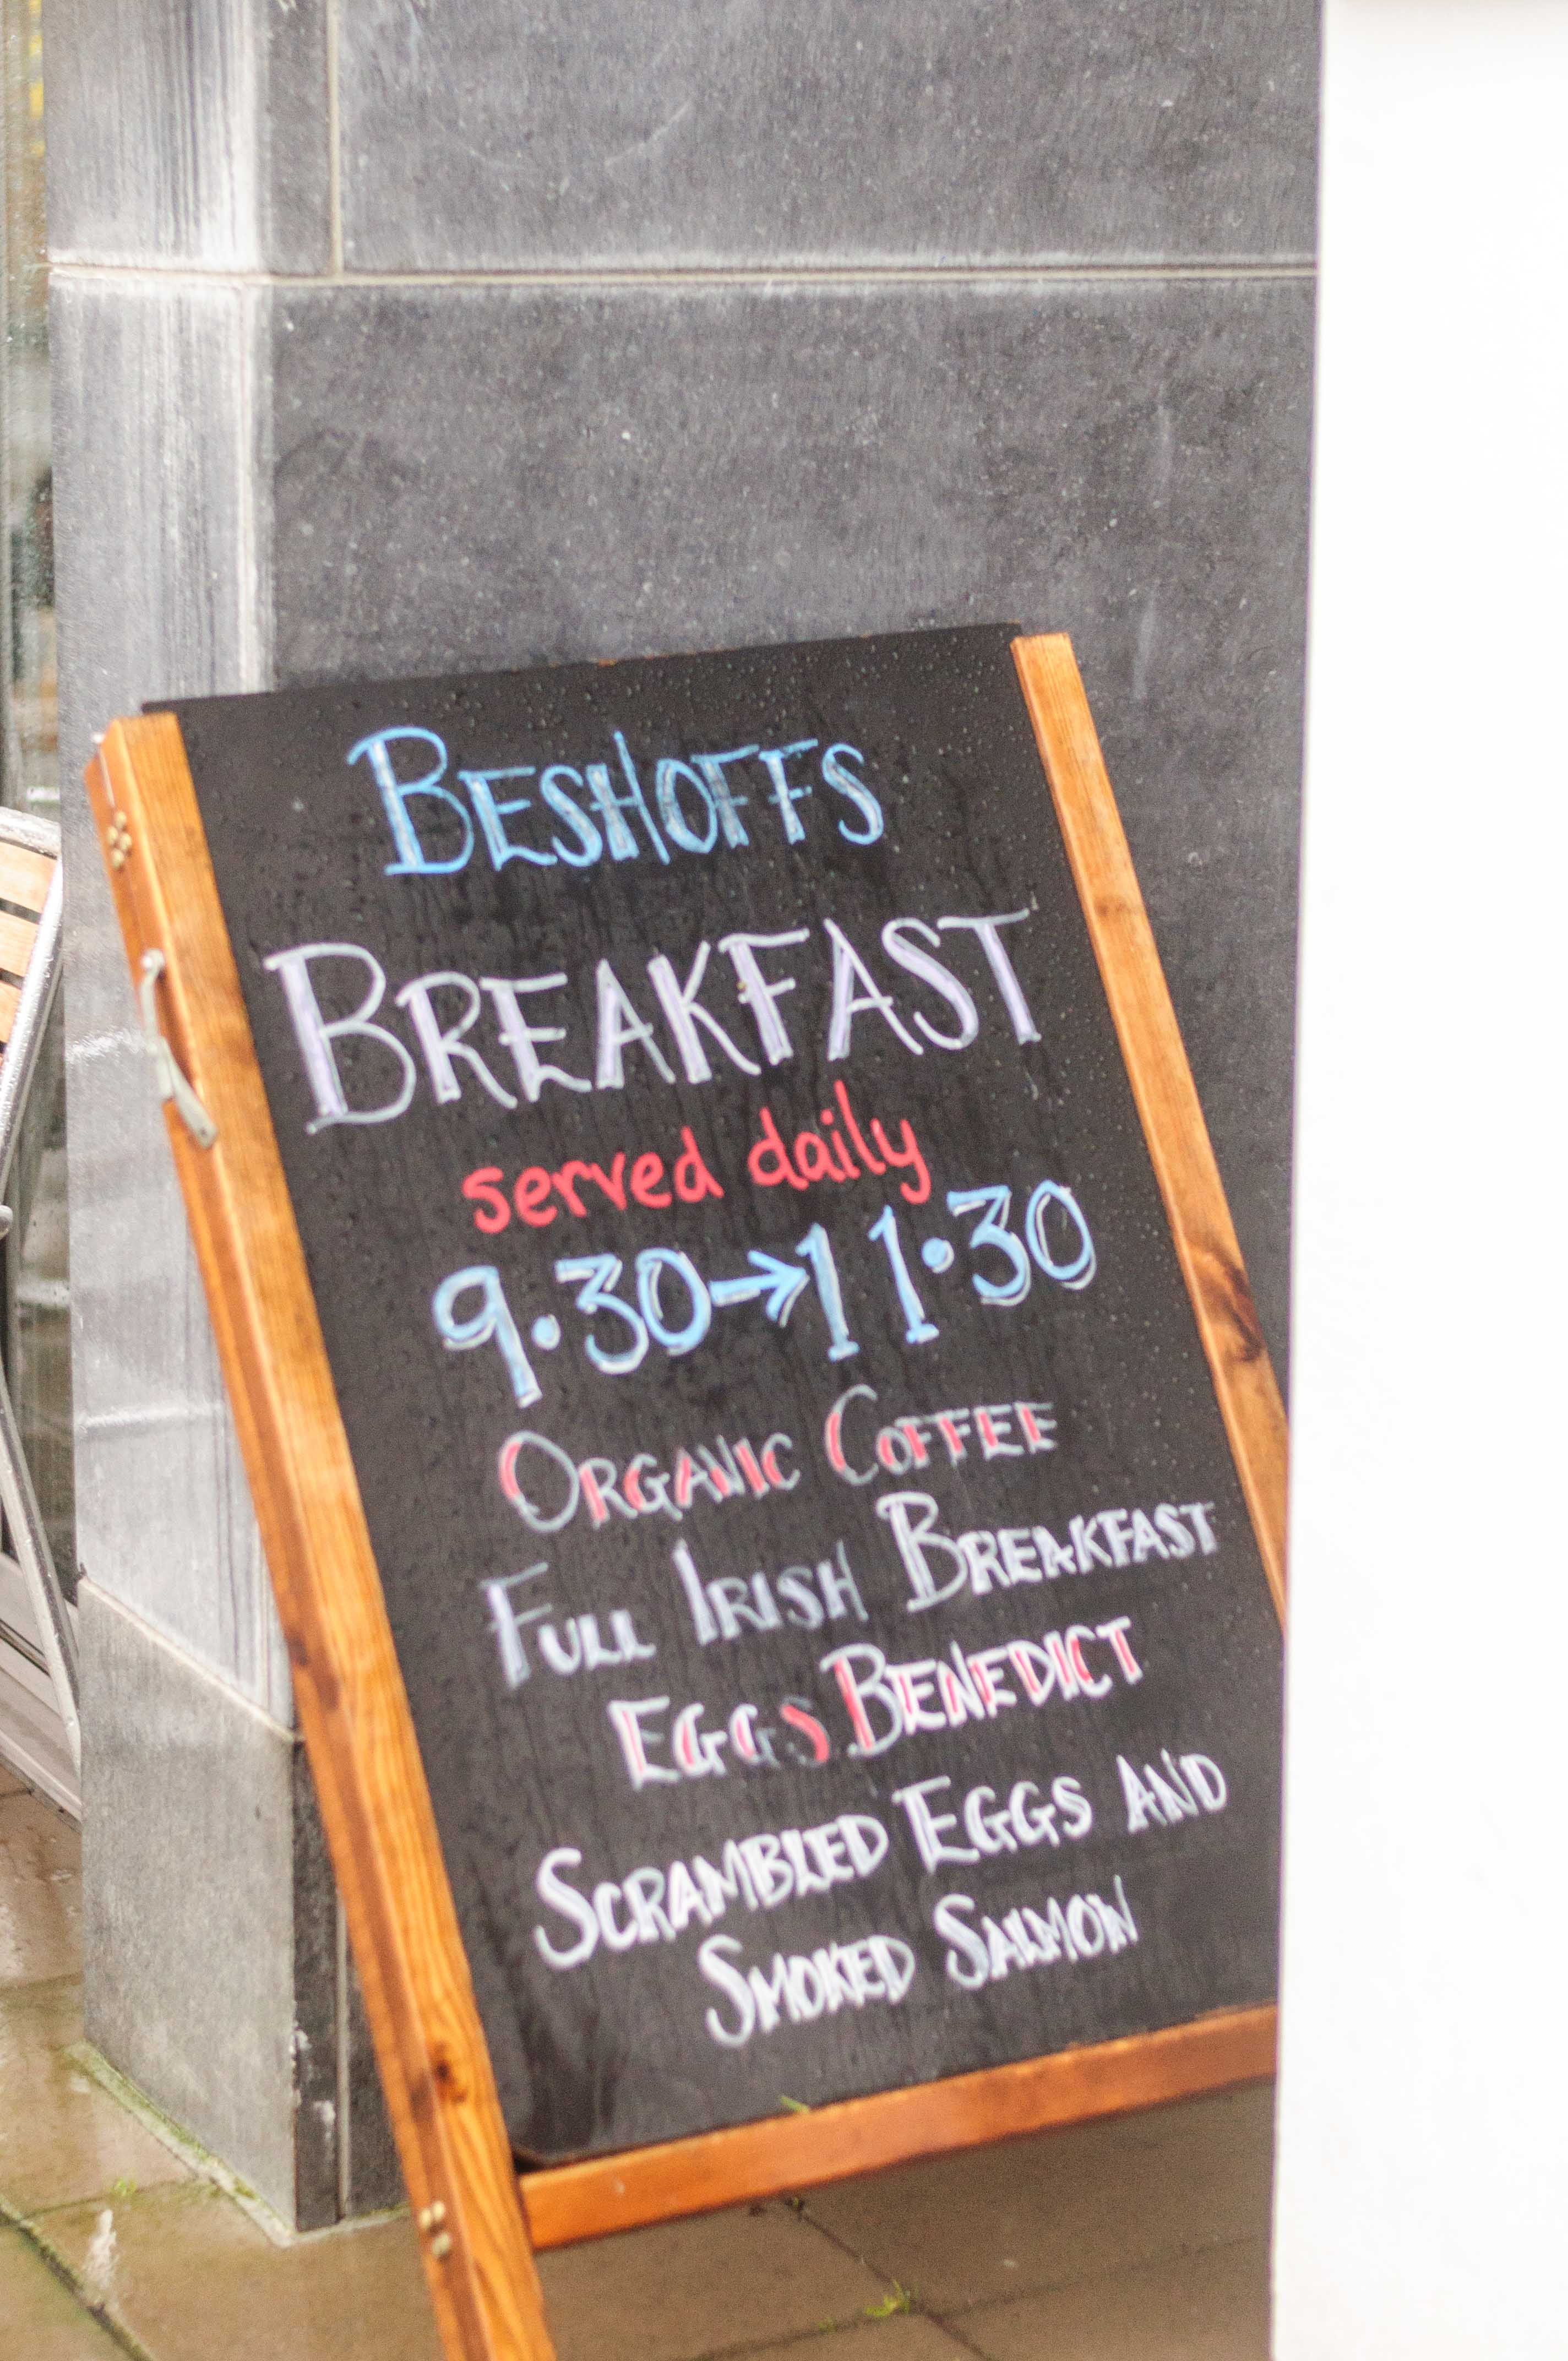 BESHOFFS
BREAKFAST
served daily
9.30→11.30
ORGANIC COFFEE
FULL IRISH BREAKFAST
EGGS BENEDICT
SCRAMBLED EGGS AND
SMOKED SALMON